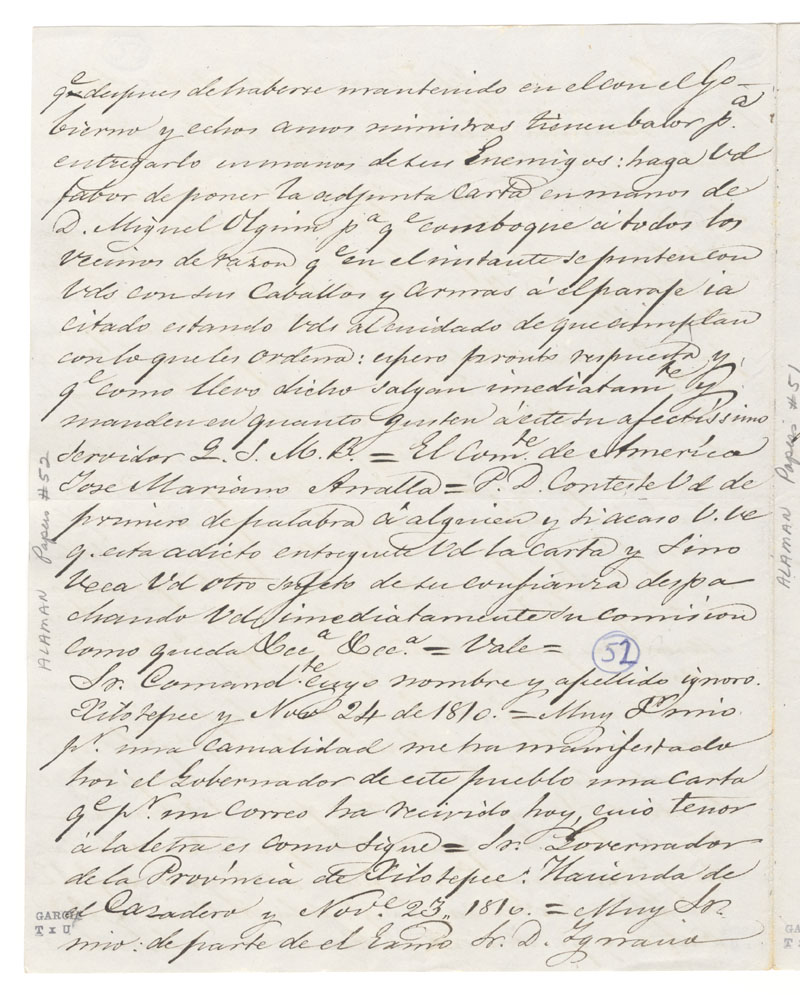 qe despues de haberse mantenido en el con el Go-
bierno y echos amos ministros tienen balor pa.
entregarlo en manos de sus Enemigos: haga Vd
fabor de poner la adjunta Carta en manos de
D. Miguel Olguin pa qe comboque á todos los
Vecinos de razon qe en el instante se punten con
Vds con sus Caballos y Armas á el paraje ia
citado estando Vds al cuidado de que cumplan
con lo que les ordena: espero pronto respuesta y
qe como llevo dicho salgan imediatamte y
manden en quanto gusten á este su afectissimo
servidor Q. S. M. B. = El Comte. de America
Jose Mariano Analla = P. D. Conteste Vd de
primero de palabra á alguien y si acaso V. ve
q. esta adicto entreguele Vd la carta y Sino
Veea Vd otro sujeto de su confianza despa
chando Vd imediatamente su comision
como queda &cca &cca. = Vale =
52
Sr. Comandte. cuyo nombre y apellido ignoro.
Xilotepec y Nove 24 de 1810. = Muy Sr mio
pr. una casualidad me ha manifestado
hoi el Gobernador de este pueblo una Carta
qe pr. un Correo ha recivido hoy, cuio tenor
á la letra es como sigue = Sr. Governador
de la Provincia de Xilotepec. Hacienda de
el Cazadero y Nove. 23,, 1810. = Muy Sr.
mio: de parte de el Exmo Sr. D. Ygnacio
ALAMAN Papers #52
ALAMAN Papers #51
GARCIA
T x U
GA
T